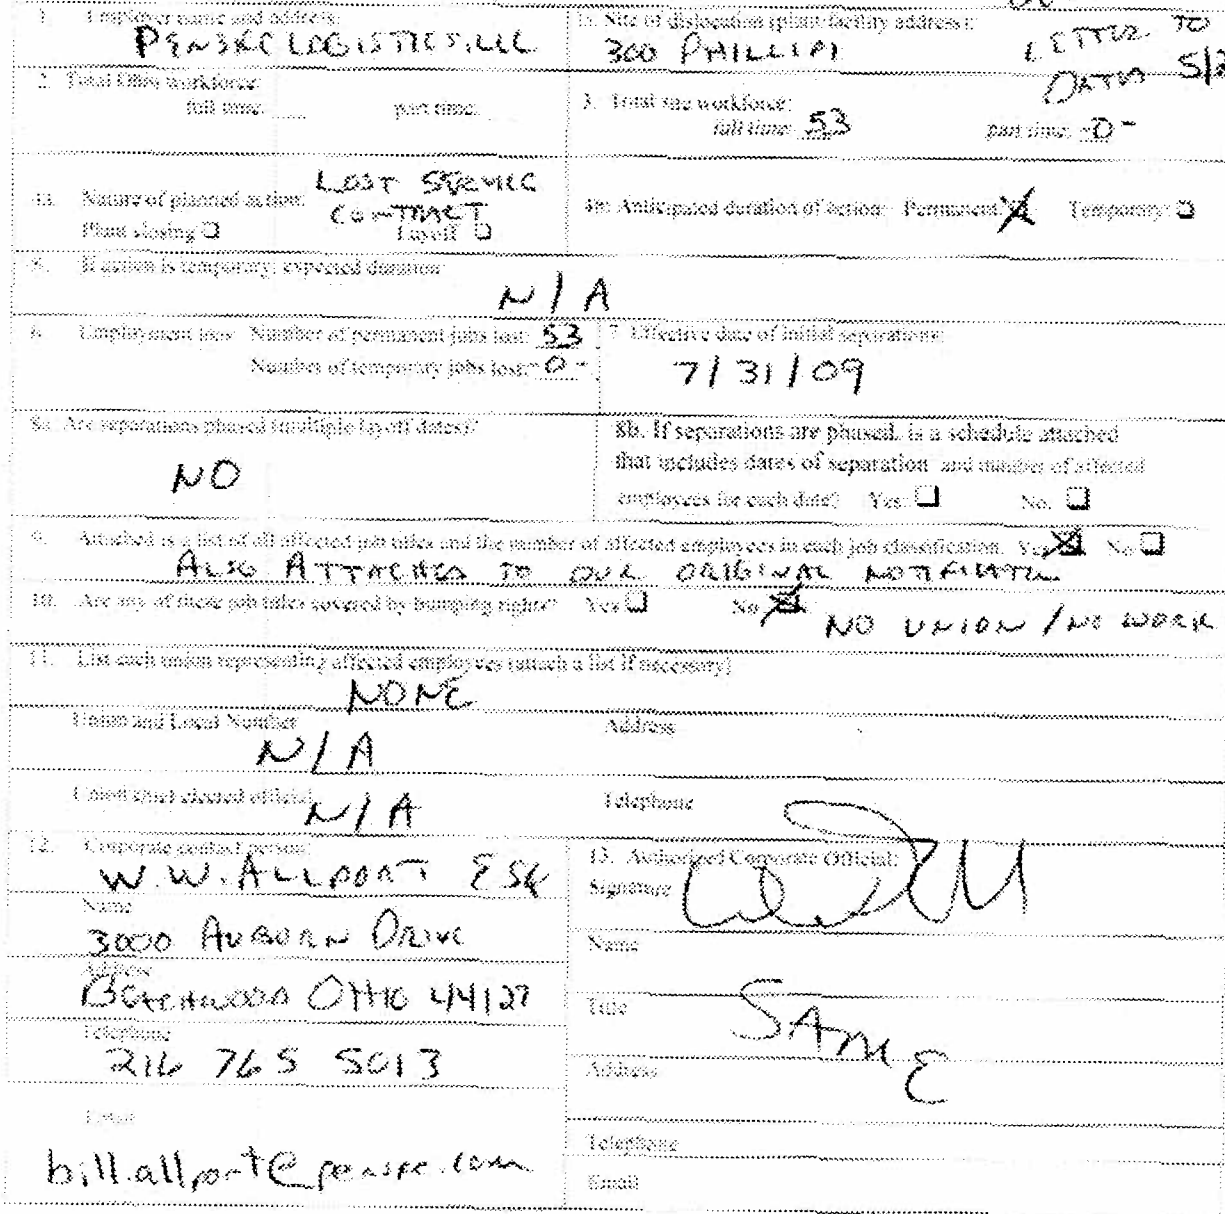 1. Employer name and address:
PENSKE LOGISTICS, LLC
1a. Site of dislocation (plant/facility address):
300 PHILLIPI
LETTER TO
DATED 5/2
2. Total Ohio workforce:
full time: part time:
3. Total site workforce:
full time: 53 part time: -0-
4a. Nature of planned action: LOST SERVICE
CONTRACT
Plant closing ☐ Layoff ☐
Anticipated duration of action: Permanent ☒ Temporary: ☐
5. If action is temporary, expected duration
N/A
6. Employment loss: Number of permanent jobs lost: 53
Number of temporary jobs lost: -0-
7. Effective date of initial separations:
7/31/09
8a. Are separations phased (multiple layoff dates)?
NO
8b. If separations are phased, is a schedule attached
that includes dates of separation and number of affected
employees for each date? Yes: ☐ No. ☐
9. Attached is a list of all affected job titles and the number of affected employees in each job classification. Yes ☒ No ☐
ALSO ATTACHED TO OUR ORIGINAL NOTIFICATION
10. Are any of these job titles covered by bumping rights? Yes ☐ No ☒
NO UNION / NO WORK
11. List each union representing affected employees (attach a list if necessary)
NONE
Union and Local Number Address
N/A
Union chief elected official Telephone
N/A
12. Corporate contact person:
W.W. ALLPORT ESQ
Name
3000 AUBURN DRIVE
Address
BEACHWOOD OHIO 44127
Telephone
216 765 5013
Email
bill.allport@penske.com
13. Authorized Corporate Official:
Signature
Name
Title
SAME
Address
Telephone
Email